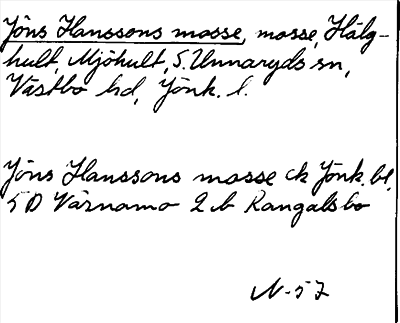 Jöns Hanssons mosse, mosse, Hälg-
hult, Mjöhult, S. Unnaryds sn,
Västbo hd, Jönk. l.
Jöns Hanssons mosse ek Jönk. bl.
5 D Värnamo 2 b Rangalsbo
N-57